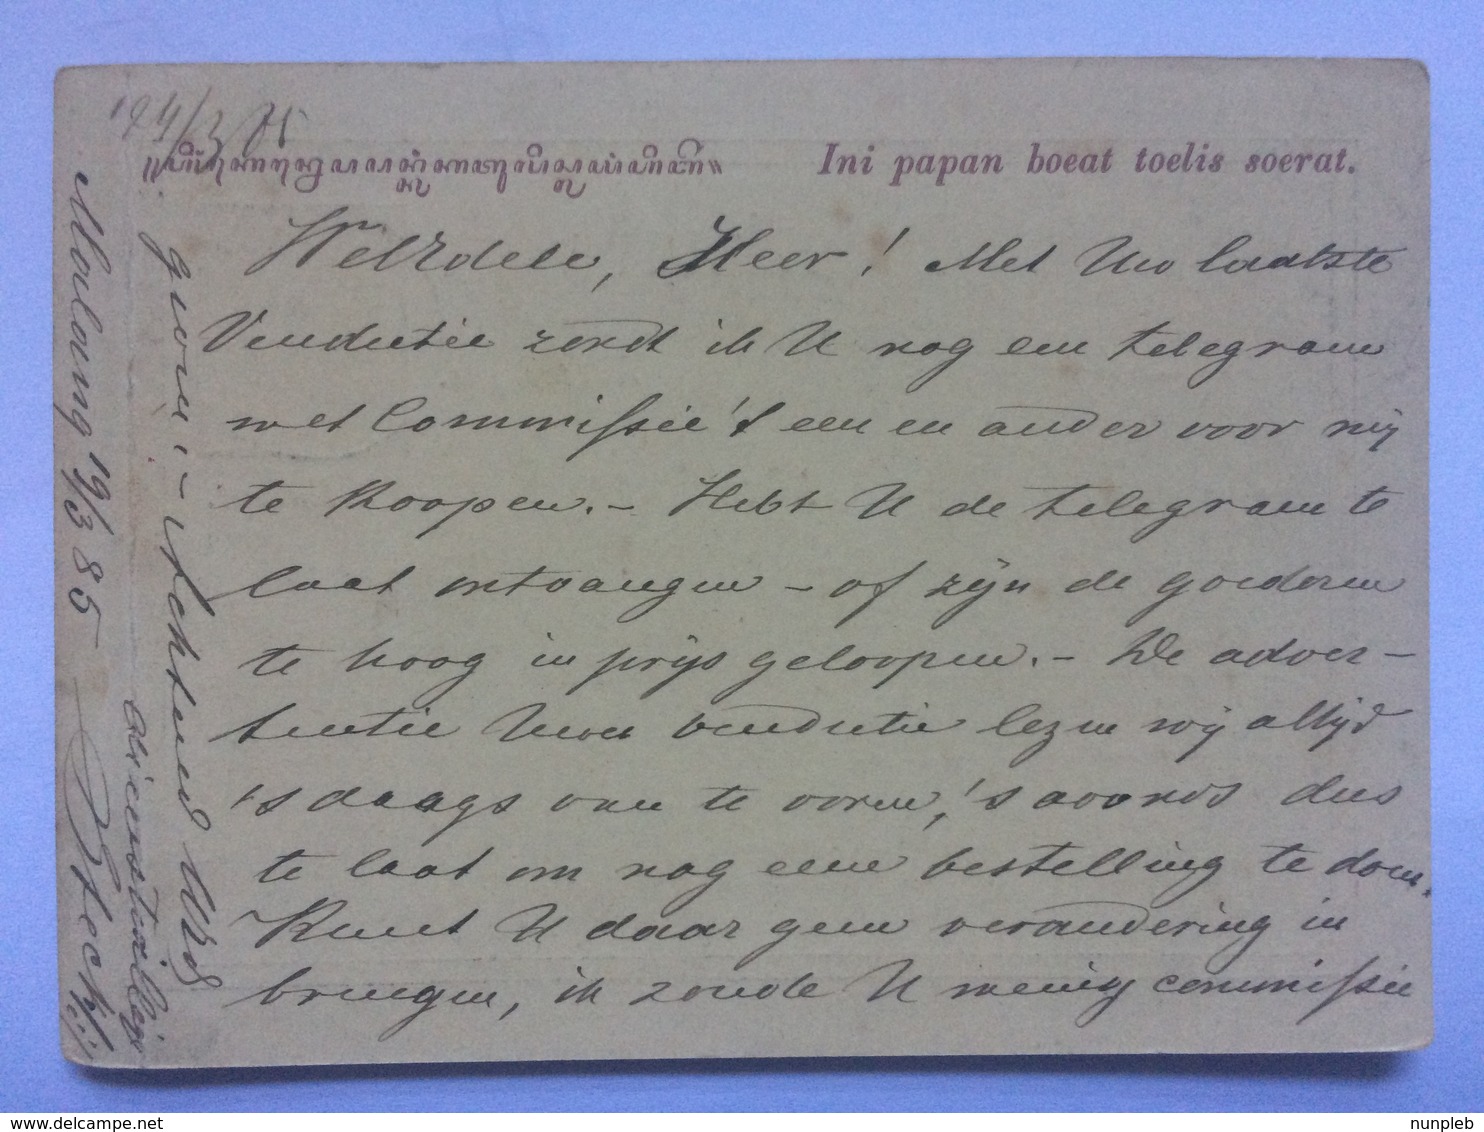 Ini papan boeat toelis soerat.
WelEdele, Heer! Met Uw laatste
Vendutie zondt ik U nog een telegram
met Commissie's een en ander voor mij
te Koopen. – Hebt U de telegram te
laat ontvangen – of zijn de goederen
te hoog in prijs geloopen. – De adver-
tentie Uwer vendutie lezen wij altijd
's daags van te voren, 's avonds dus
te laat om nog een bestelling te doen.
Kunt U daar geen verandering in
brengen, ik zoude U menig commissie
geven. – Achtend UEd
dienstwillige
Malang 19/3 85
nunpleb